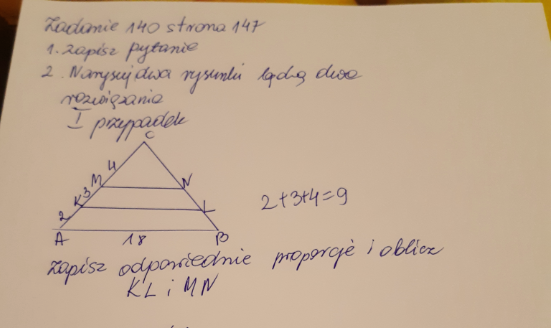 Zadanie 140 strona 147
1. Zapisz pytanie
2. Narysuj dwa rysunki będą dwa
rozwiązania
I przypadek
C
4
M
N
3
K
L
2
A
18
B
2+3+4=9
Zapisz odpowiednie proporcje i oblicz
KL i MN